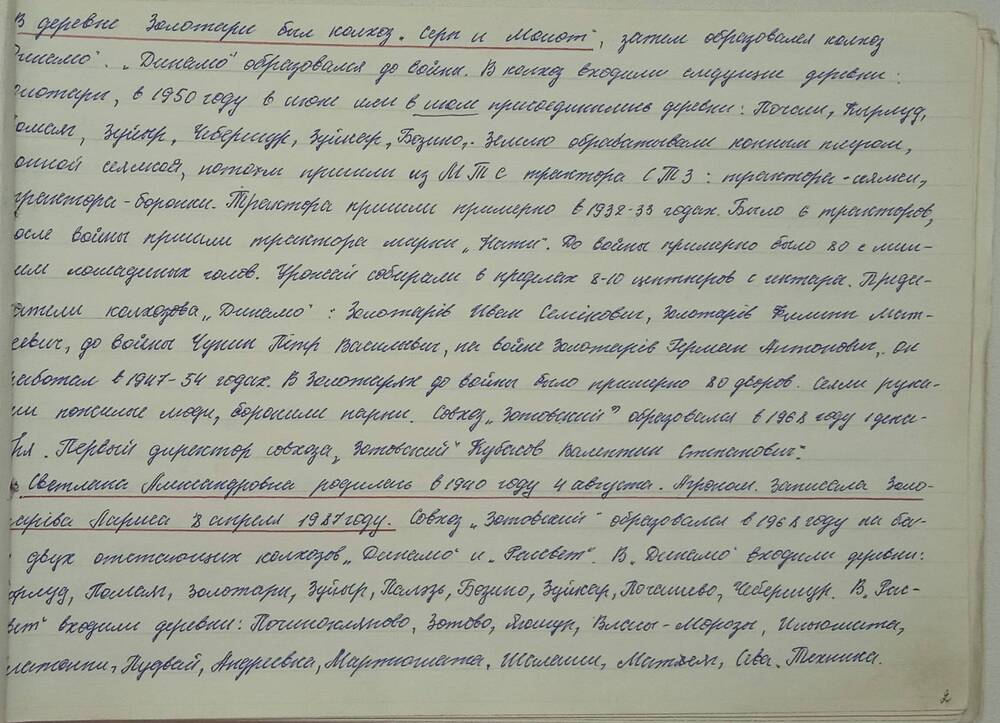 В деревне Золотари был колхоз „Серп и Молот", затем образовался колхоз
Динамо". „Динамо" образовался до войны. В колхоз входили следущие деревни:
лотари, в 1950 году в июне или в июле присоединились деревни: Почаши, Кырлуд,
омаяг, Зуйыр, Чебершур, Зуйкар, Бозино,. Землю обрабатывали конным плугом,
онной сеялкой, потом пришли из МТС трактора СТЗ: трактора-сеялки,
трактора-боронки. Трактора пришли примерно в 1932-33 годах. Было 6 тракторов,
осле войны пришли трактора марки „Нати". До войны примерно было 80 с лиш-
им лошадиных голов. Урожай собирали в пределах 8-10 центнеров с гектара. Предсе-
атели колхозова „Динамо": Золотарёв Иван Семёнович, Золотарёв Филипп Мат-
еевич, до войны Чупин Пётр Васильевич, на войне Золотарёв Герман Антонович, он
работал в 1947-54 годах. В Золотарях до войны было примерно 80 дворов. Сеяли рука-
ми пожилые люди, боронили парни. Совхоз „Зотовский" образовался в 1968 году 1 дека-
бря. Первый директор совхоза „Зотовский" Кубасов Валентин Степанович".
Светлана Александровна родилась в 1940 году 4 августа. Агроном. Записала Золо-
тарёва Лариса 8 апреля 1987 году. Совхоз „Зотовский" образовался в 1968 году на ба-
двух отстающих колхозов „Динамо" и „Рассвет". В „Динамо" входили деревни:
ырлуд, Помаяг, Золотари, Зуйыр, Палозь, Бозино, Зуйкар, Почашево, Чебершур. В „Рас-
вет" входили деревни: Починокляпово, Зотово, Ягошур, Власы-Морозы, Ильюшата,
латонки, Пудвай, Андреевка, Мартюшата, Шалаши, Сева. Техника.
2